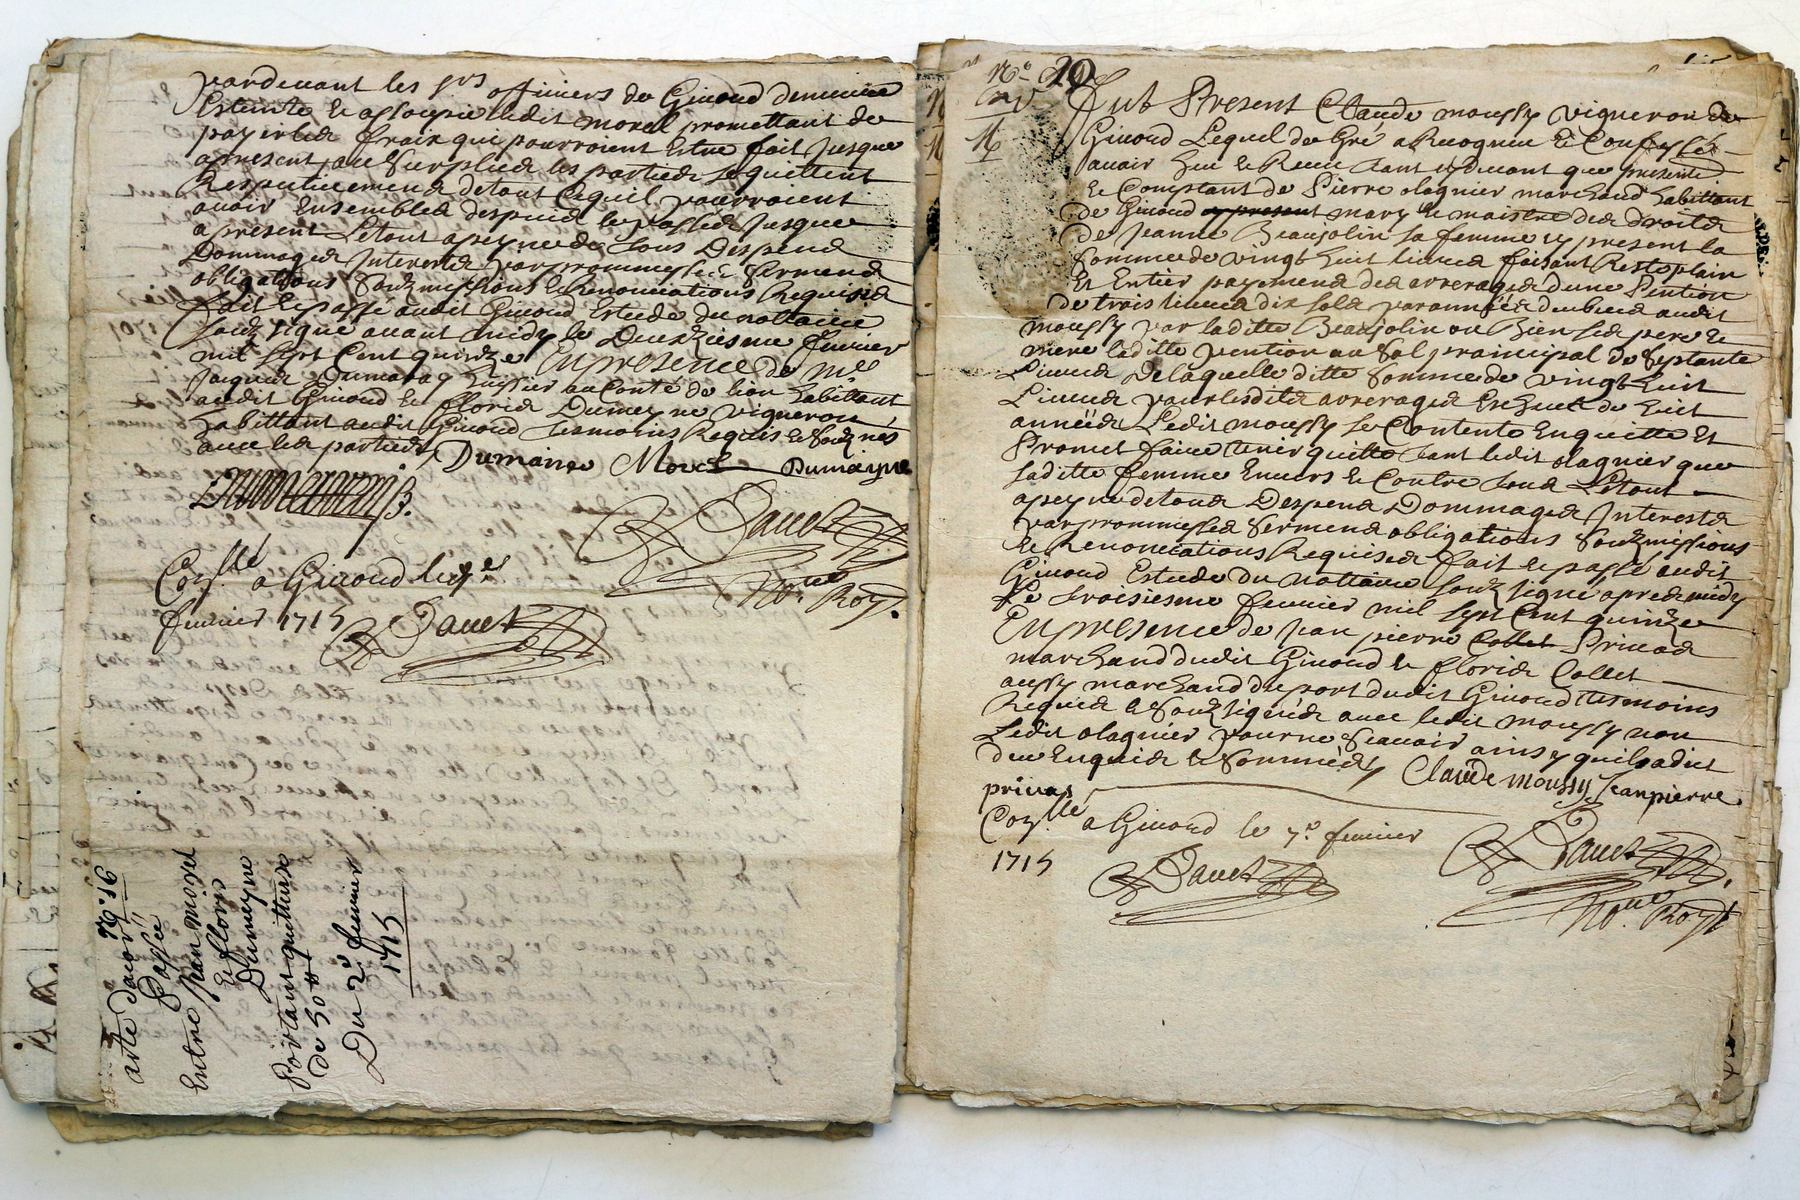 pardeuant les srs officiers de Giuord demeure
Esteinte et assoupie ledit morel promettant de
payer les fraix qui pourroient Estre fait Jusque
apresent, au Surplus les parties se quittent
Respectiuement de tout Ce quil pourroient
auoir Ensembles despuis le passé Jusque
apresent Letout apeyne de tous Despens
Dommages Interests par prommesses Serments
obligations Soubzmissions et Renonciations Requises
fait et passé audit Giuord Estude du nottaire
Soubzsigné auant midy le Deuxziesme feurier
mil sept Cent quinze En presence de me
Jacques Dumaray huissier au Conté de lion habittant
audit Giuord et floris Dumeyne vigneron
habittant audit Giuord tesmoins Requis et Soubznés
auec les parties Dumaine Morel Dumaigne
Dauet
Nore Roy.
Conllé a Giuord le 7e
feurier 1715 Dauet
N. 16
acte dacord
Passé
Entre Jean morel
Et floris
Dumeyne
Portant quittance
de 50 ₶
Du 2e feurier
1715
No 20
Fut Present Claude moussy vigneron de
Giuord Lequel de Gré a Recogneu et Confessé
auoir heu et Receu tant cy deuant que presentt
et Comptant de Pierre olagnier marchand habittant
de Giuord apresent mary et maistre des droits
de Jeanne Beaujolin sa femme cy present la
Somme de vingt huit liures faisant Reste plain
et Entier payement des arrerages dune Pention
de trois liures dix sols par année deubue audit
moussy par laditte Beaujolin ou Bien ses pere et
mere laditte pention au Sol principal de Septante
Liures De laquelle ditte Somme de vingt huit
Liures pour lesdits arrerages Escheus de huit
années Ledit moussy se Contente En quitte Et
Promet faire tenir quitte tant ledit olagnier que
saditte femme Enuers et Contre tous Letout
apeyne de tous Despens Dommages Interests
par prommesses Serments obligations Soubzmissions
et Renonciations Requises fait et passé audit
Giuord Estude du nottaire Soubzsigné apres midy
Le troisiesme feurier mil sept Cent quinze
En presence de Jean pierre Collet Priuas
marchand dudit Giuord et floris Collet
aussy marchand du port dudit Giuord tesmoins
Requis et Soubzsignés auec ledit moussy non
Ledit olagnier pour ne Scauoir ainsy quil a dict
deue Enquis et Sommés Claude moussy Jeanpierre
priuas
Conllé a Giuord le 7e feurier
1715 Dauet
Dauet
Nore Roy